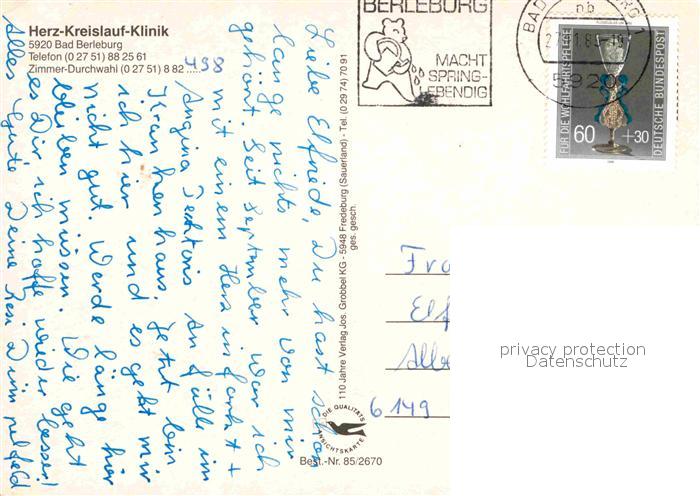 Herz-Kreislauf-Klinik
5920 Bad Berleburg
Telefon (0 27 51) 88 25 61
Zimmer-Durchwahl (0 27 51) 8 82 498
Liebe Elfriede, Du hast schon
lange nichts mehr von mir
gehört. Seit September war ich
mit einem Herzinfarkt +
Angina Pectoris Anfälle im
Krankenhaus. Jetzt bin
ich hier und es geht mir
nicht gut. Werde länge hier
bleiben müssen. Wie geht
es Dir, ich hoffe wieder besser!
Alles Gute Deine Resi
110 Jahre Verlag Jos. Grobbel KG - 5948 Fredeburg (Sauerland) - Tel. (0 29 74) 70 91
ges. gesch.
DIE QUALITÄTS
ANSICHTSKARTE
Best.-Nr. 85/2670
BERLEBURG
MACHT
SPRING-
LEBENDIG
BAD BERLEBURG 1
nb
5920
FÜR DIE WOHLFAHRTSPFLEGE
60 +30
DEUTSCHE BUNDESPOST
Fra
Elf
Alle
6149
privacy protection
Datenschutz